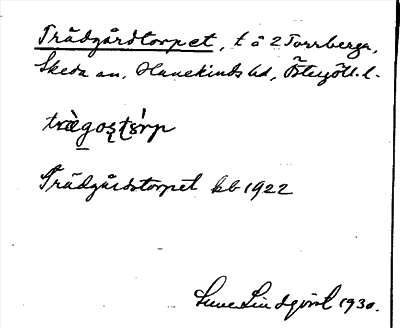 Trädgårdstorpet, t å 2 Torrberga,
Skeda sn, Hanekinds hd, Östergötl. l.
Trädgårdstorpet kb 1922
Sune Lindqvist 1930.